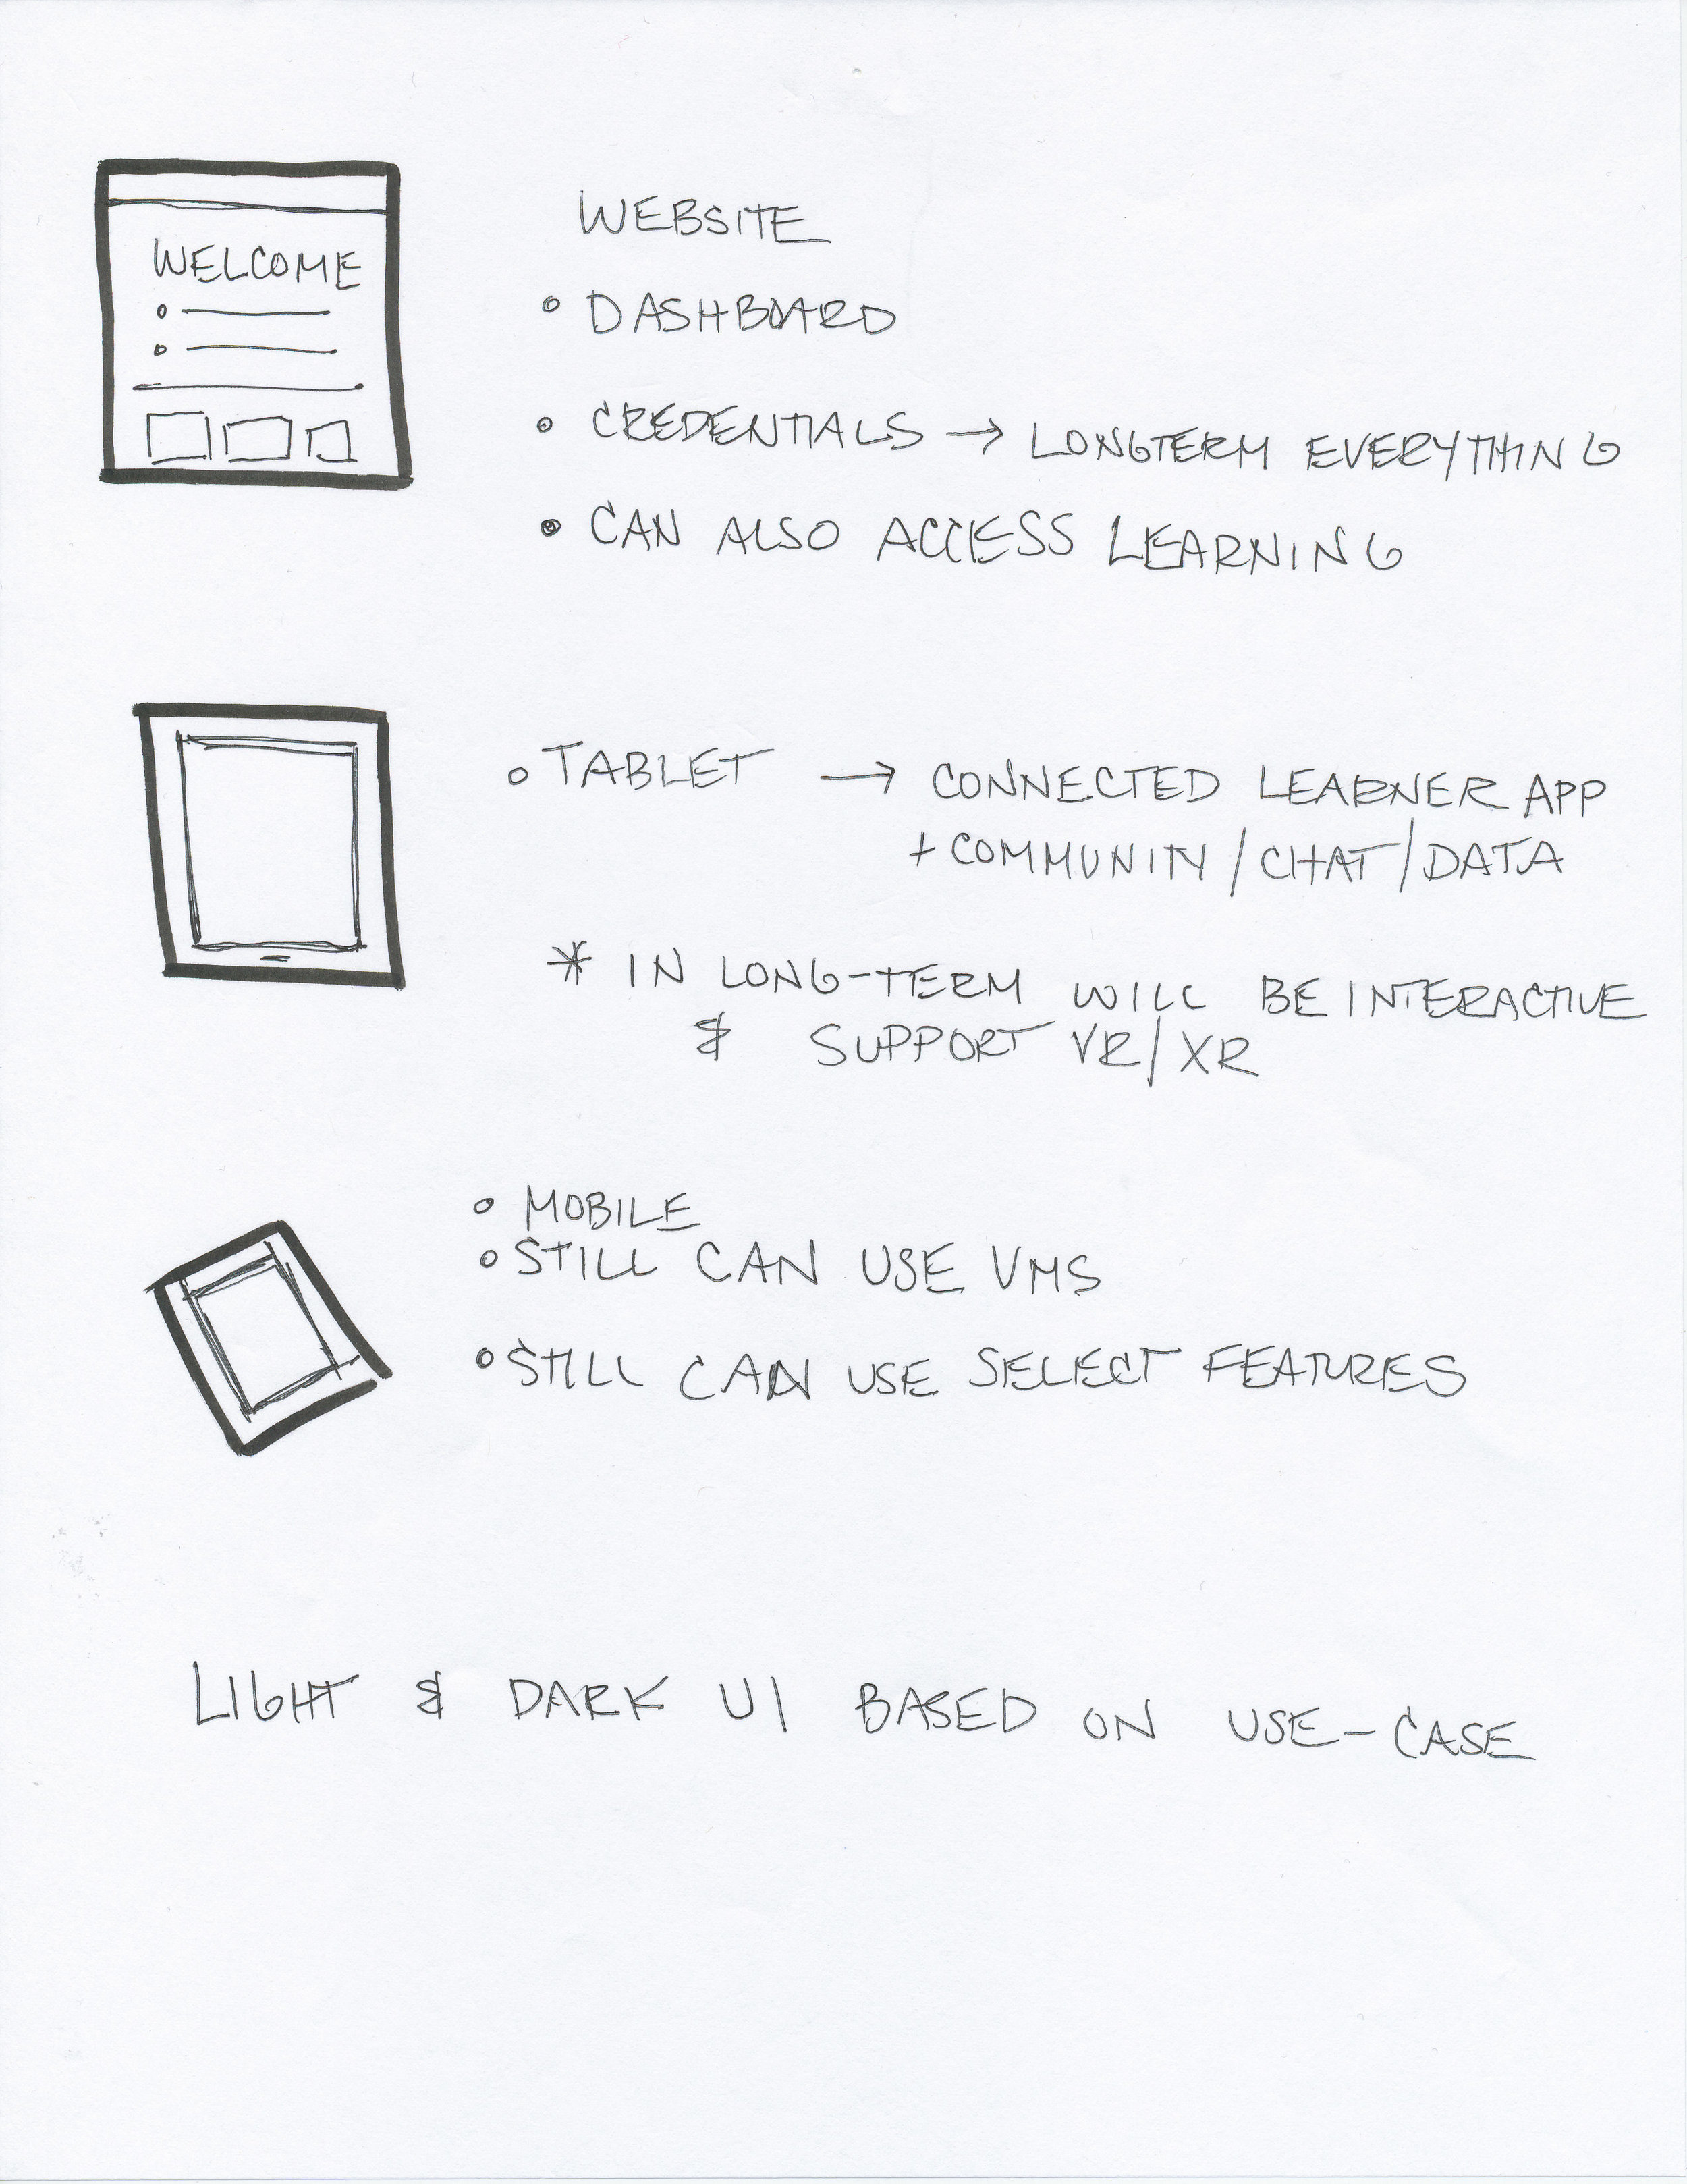 WELCOME
WEBSITE
• DASHBOARD
• CREDENTIALS → LONGTERM EVERYTHING
• CAN ALSO ACCESS LEARNING
• TABLET → CONNECTED LEARNER APP
+ COMMUNITY / CHAT / DATA
* IN LONG-TERM WILL BE INTERACTIVE
& SUPPORT VR/XR
• MOBILE
• STILL CAN USE VMS
• STILL CAN USE SELECT FEATURES
LIGHT & DARK UI BASED ON USE-CASE